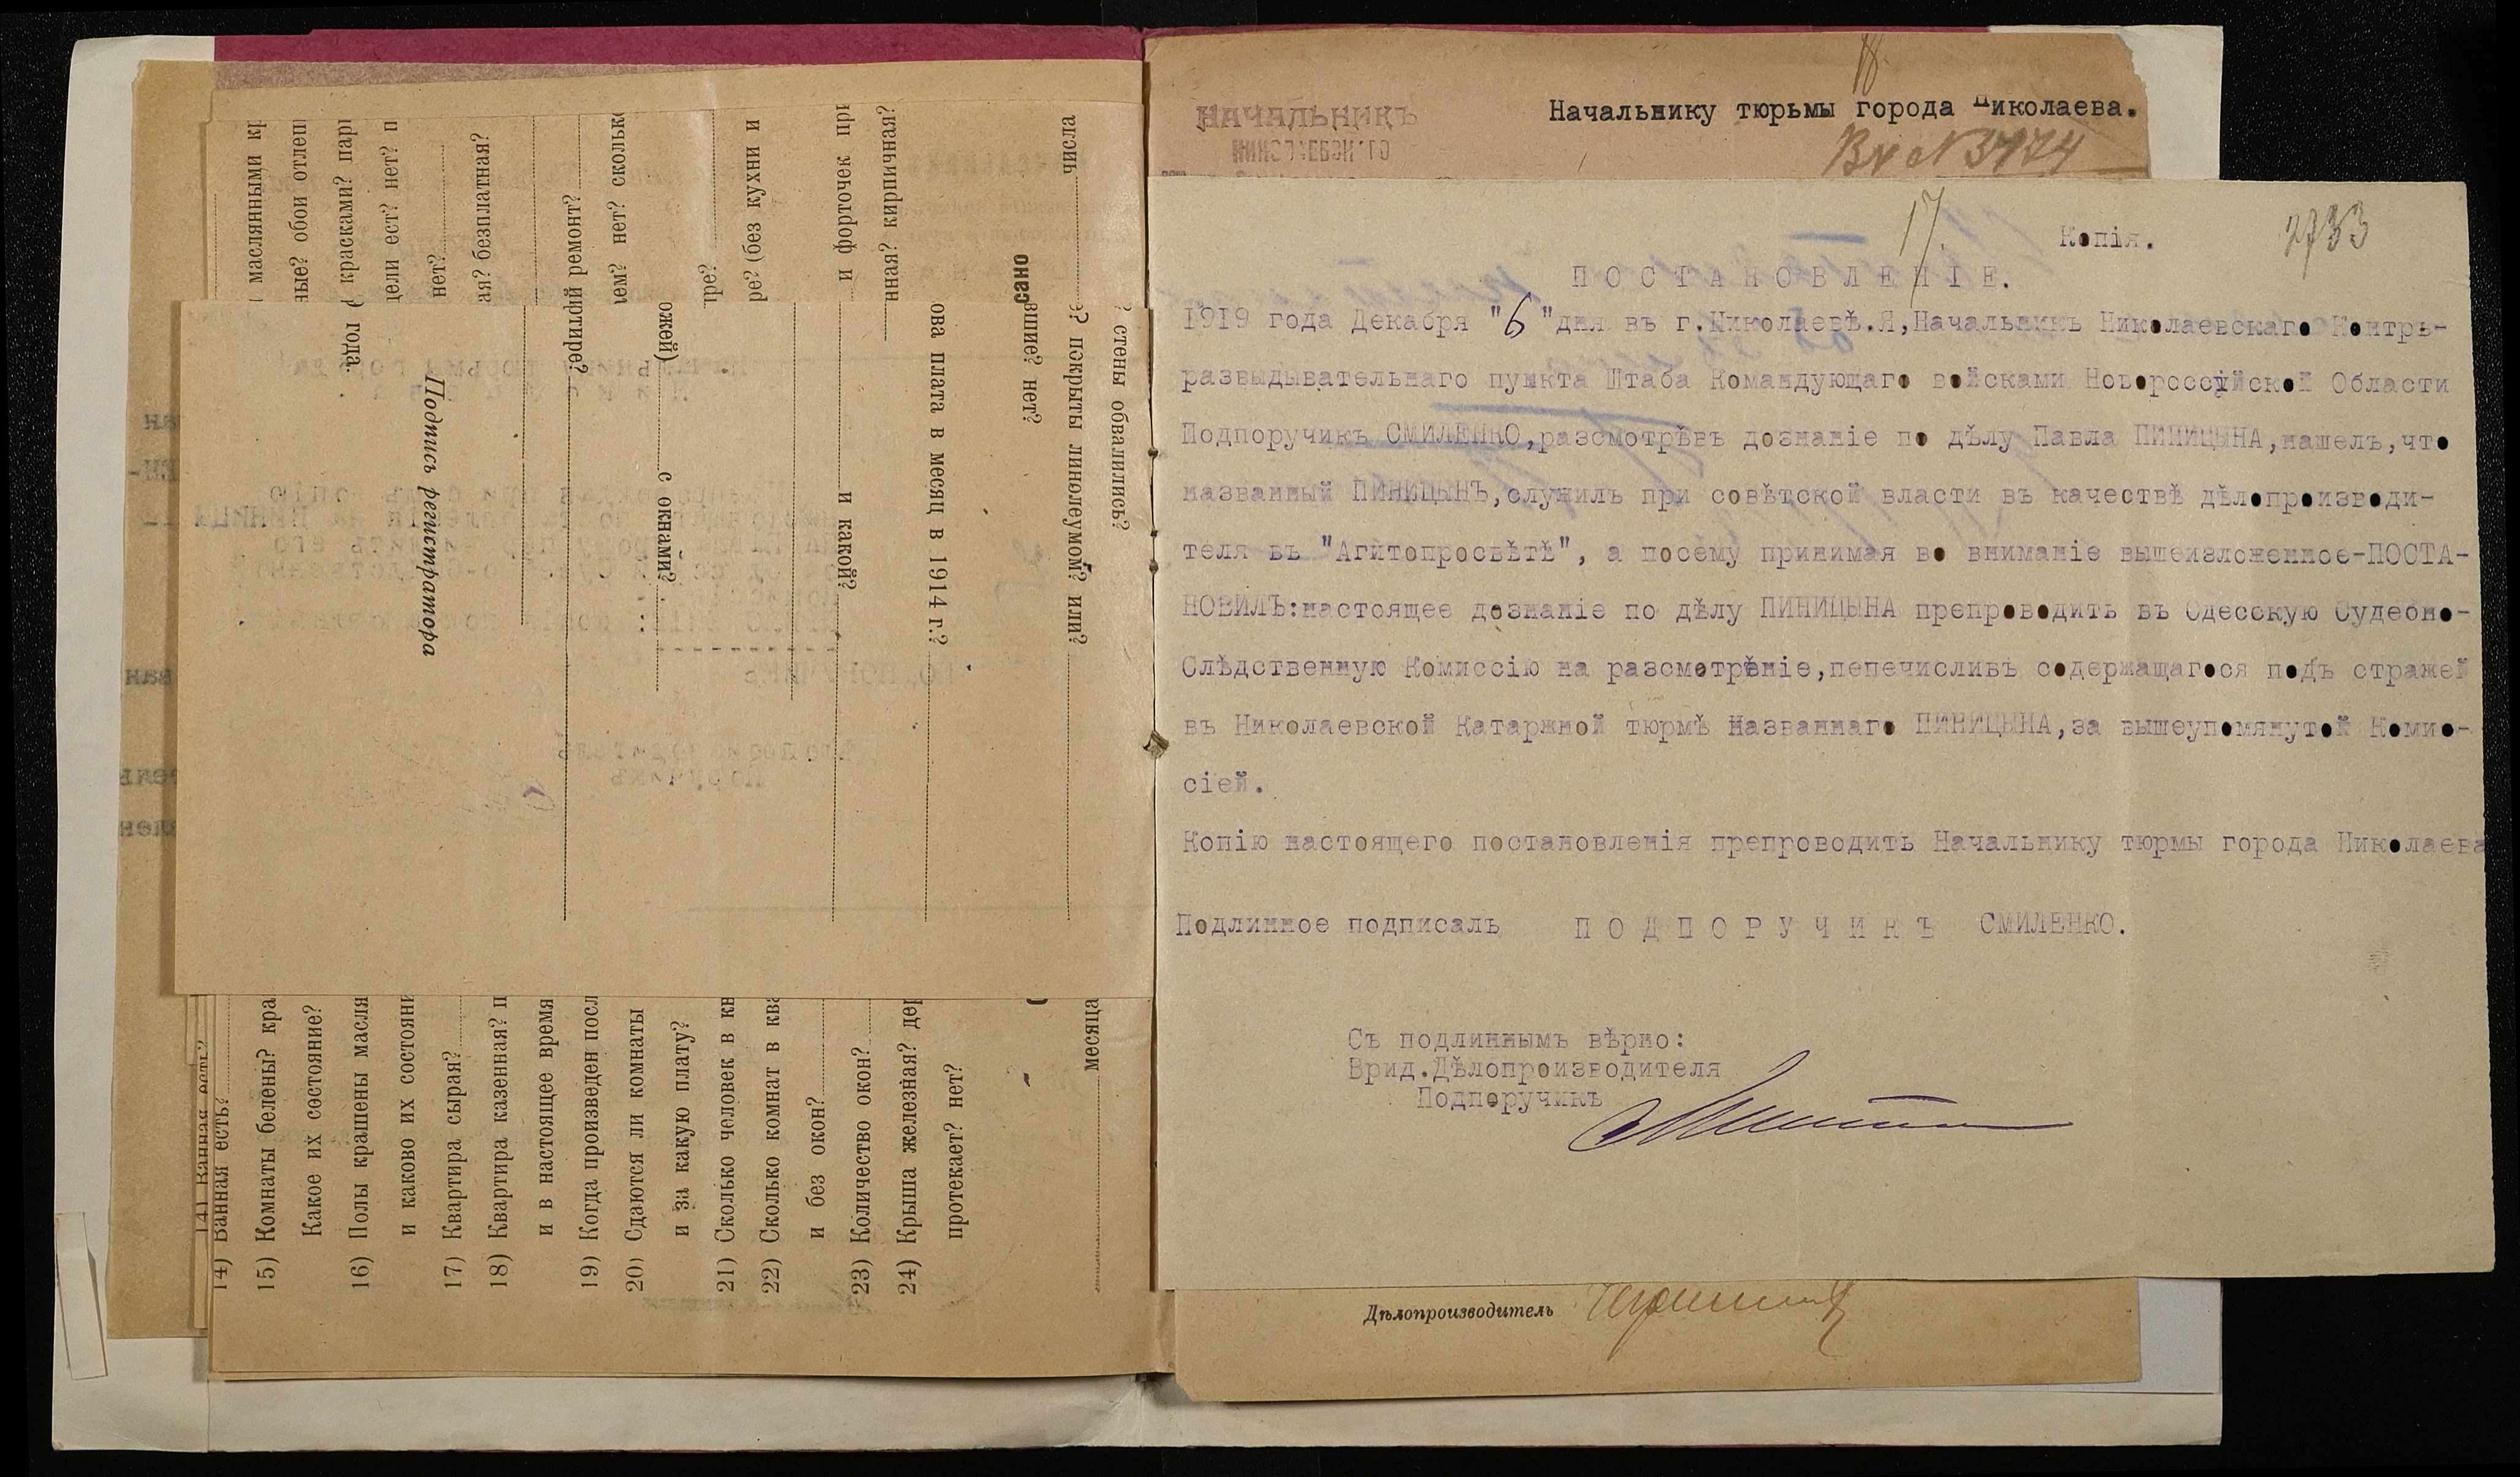 Начальнику тюрьмы города Николаева.
НАЧАЛЬНИКЪ
Вх № 3774
17.
Копія.
2733
ПОСТАНОВЛЕНІЕ.
1919 года Декабря "6"дня въ г.Николаевѣ.Я,Начальникъ Николаевскаго Контръ-
развыдывательнаго пункта Штаба Командующаго войсками Новороссійской Области
Подпоручикъ СМИЛЕНКО,разсмотрѣвъ дознаніе по дѣлу Павла ПИНИЦЫНА,нашелъ,что
названный ПИНИЦЫНЪ,служилъ при совѣтской власти въ качествѣ дѣлопроизводи-
теля въ "Агитопросвѣтѣ", а посему принимая во вниманіе вышеизложенное-ПОСТА-
НОВИЛЪ:настоящее дознаніе по дѣлу ПИНИЦЫНА препроводить въ Одесскую Судебно-
Слѣдственную Комиссію на разсмотрѣніе,пепечисливъ содержащагося подъ стражей
въ Николаевской Катаржной тюрмѣ Названнаго ПИНИЦЫНА,за вышеупомянутой Комис-
сіей.
Копію настоящего постановленія препроводить Начальнику тюрмы города Николаева
Подлинное подписалъ ПОДПОРУЧИКЪ СМИЛЕНКО.
Съ подлиннымъ вѣрно:
Врид.Дѣлопроизводителя
Подпоручикъ
Дѣлопроизводитель
маслянными кр
обои отлеп
красками? пар
ест? нет? п
нет?
безплатная?
ремонт?
нет? сколько
(без кухни и
и форточек при
кирпичная?
числа
года.
Подпись регистратора
с окнами?
и какой?
ова плата в месяц в 1914 г.?
нет?
покрыты линолеумом? или?
? стены обвалились?
14) Ванная есть?
15) Комнаты белены? кра
Какое их состояние?
16) Полы крашены масля
и каково их состояни
17) Квартира сырая?
18) Квартира казенная? п
и в настоящее время
19) Когда произведен посл
20) Сдаются ли комнаты
и за какую плату?
21) Сколько человек в кв
22) Сколько комнат в ква
и без окон?
23) Количество окон?
24) Крыша железная? дер
протекает? нет?
месяца